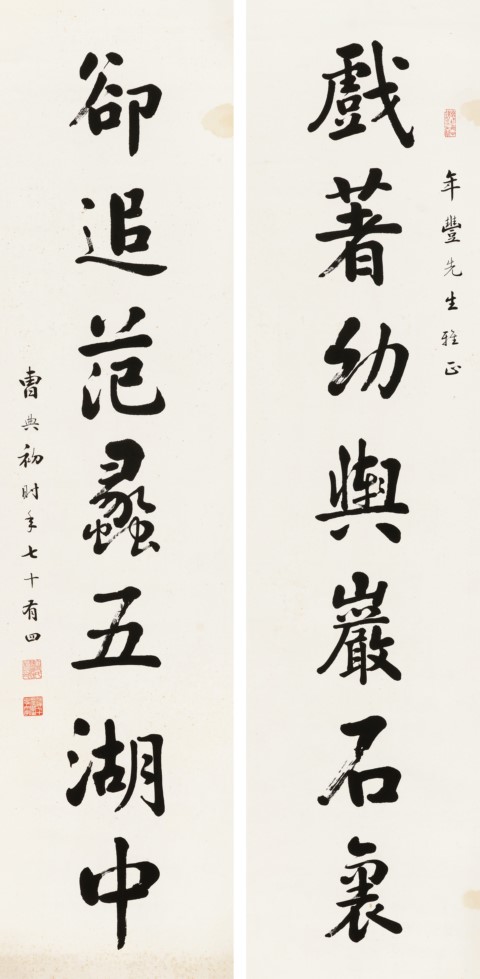 年豐先生雅正
戲著幼輿巖石裏
卻追范蠡五湖中
曹典初時年七十有四